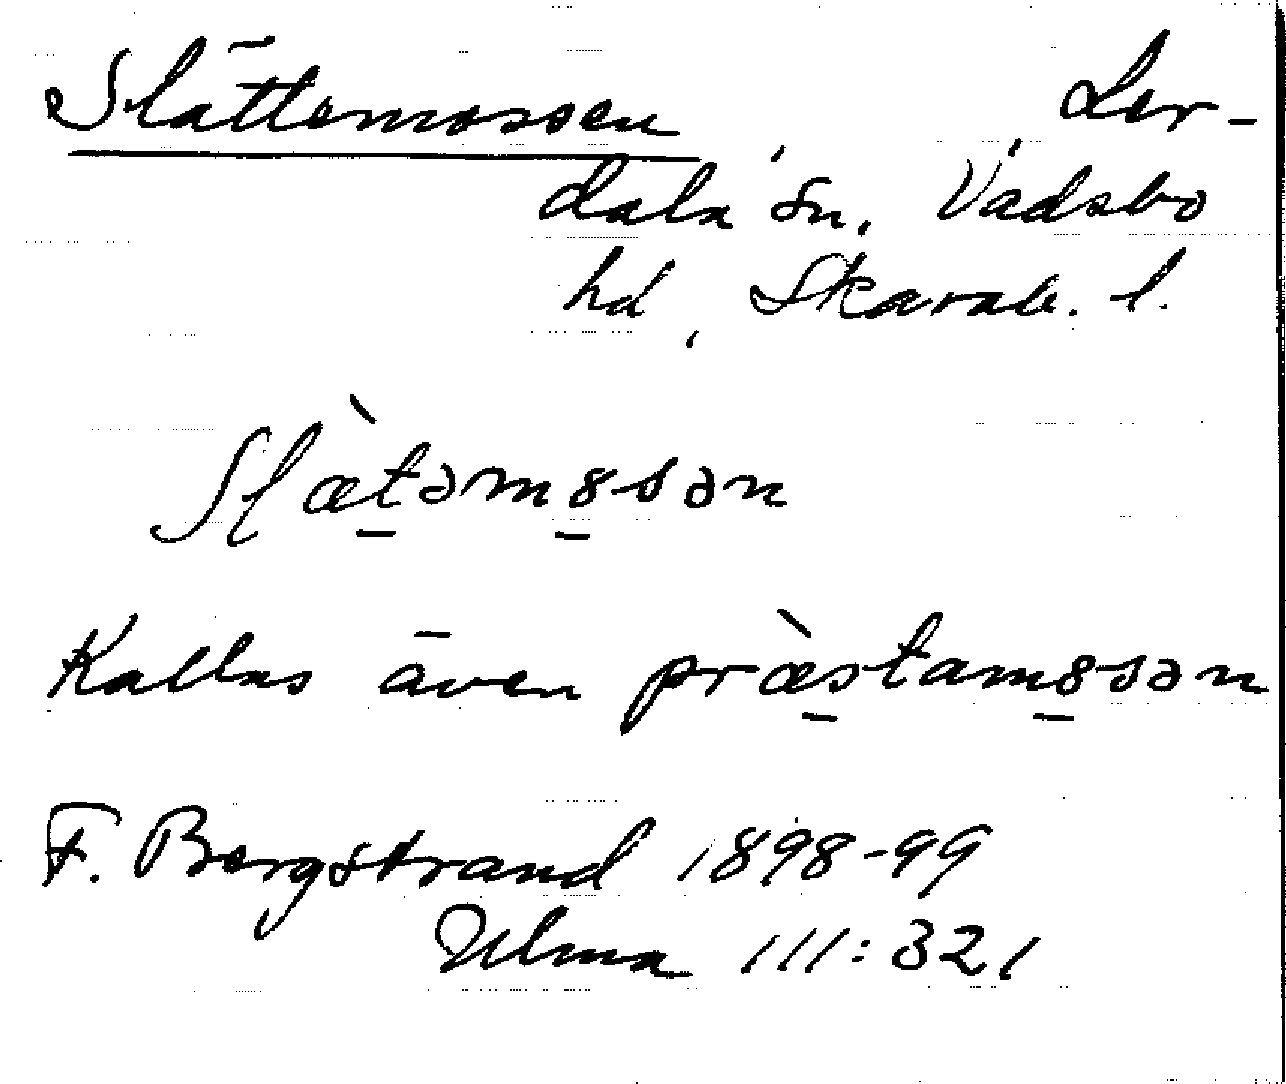 Slättemossen, Ler-
dala sn, Vadsbo
hd, Skarab. l.
Slæ̀təmȣsən
Kallas även præ̀stamȣsən
F. Bergstrand 1898-99
Ulma 111:321